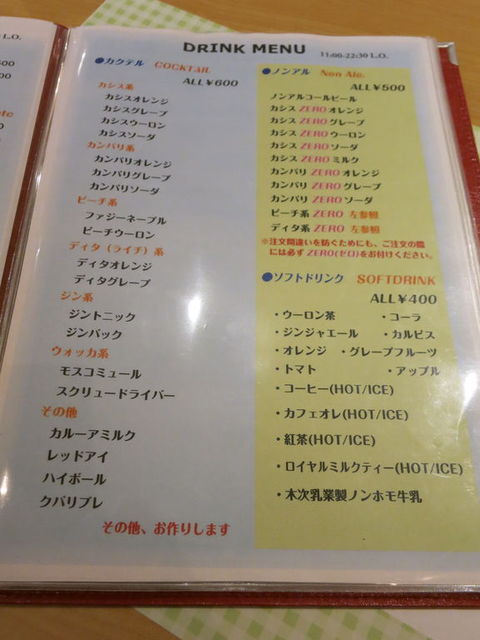 DRINK MENU
11:00-22:30 L.O.
●カクテル COCKTAIL
ALL¥600
カシス系
カシスオレンジ
カシスグレープ
カシスウーロン
カシスソーダ
カンパリ系
カンパリオレンジ
カンパリグレープ
カンパリソーダ
ピーチ系
ファジーネーブル
ピーチウーロン
ディタ（ライチ）系
ディタオレンジ
ディタグレープ
ジン系
ジントニック
ジンバック
ウォッカ系
モスコミュール
スクリュードライバー
その他
カルーアミルク
レッドアイ
ハイボール
クバリブレ
その他、お作りします
●ノンアル Non Alc.
ALL¥500
ノンアルコールビール
カシス ZERO オレンジ
カシス ZERO グレープ
カシス ZERO ウーロン
カシス ZERO ソーダ
カシス ZERO ミルク
カンパリ ZERO オレンジ
カンパリ ZERO グレープ
カンパリ ZERO ソーダ
ピーチ系 ZERO 左参照
ディタ系 ZERO 左参照
※注文間違いを防ぐためにも、ご注文の際
には必ず ZERO(ゼロ)をお付けください。
●ソフトドリンク SOFTDRINK
ALL¥400
・ウーロン茶 ・コーラ
・ジンジャエール ・カルピス
・オレンジ ・グレープフルーツ
・トマト ・アップル
・コーヒー(HOT/ICE)
・カフェオレ(HOT/ICE)
・紅茶(HOT/ICE)
・ロイヤルミルクティー(HOT/ICE)
・木次乳業製ノンホモ牛乳